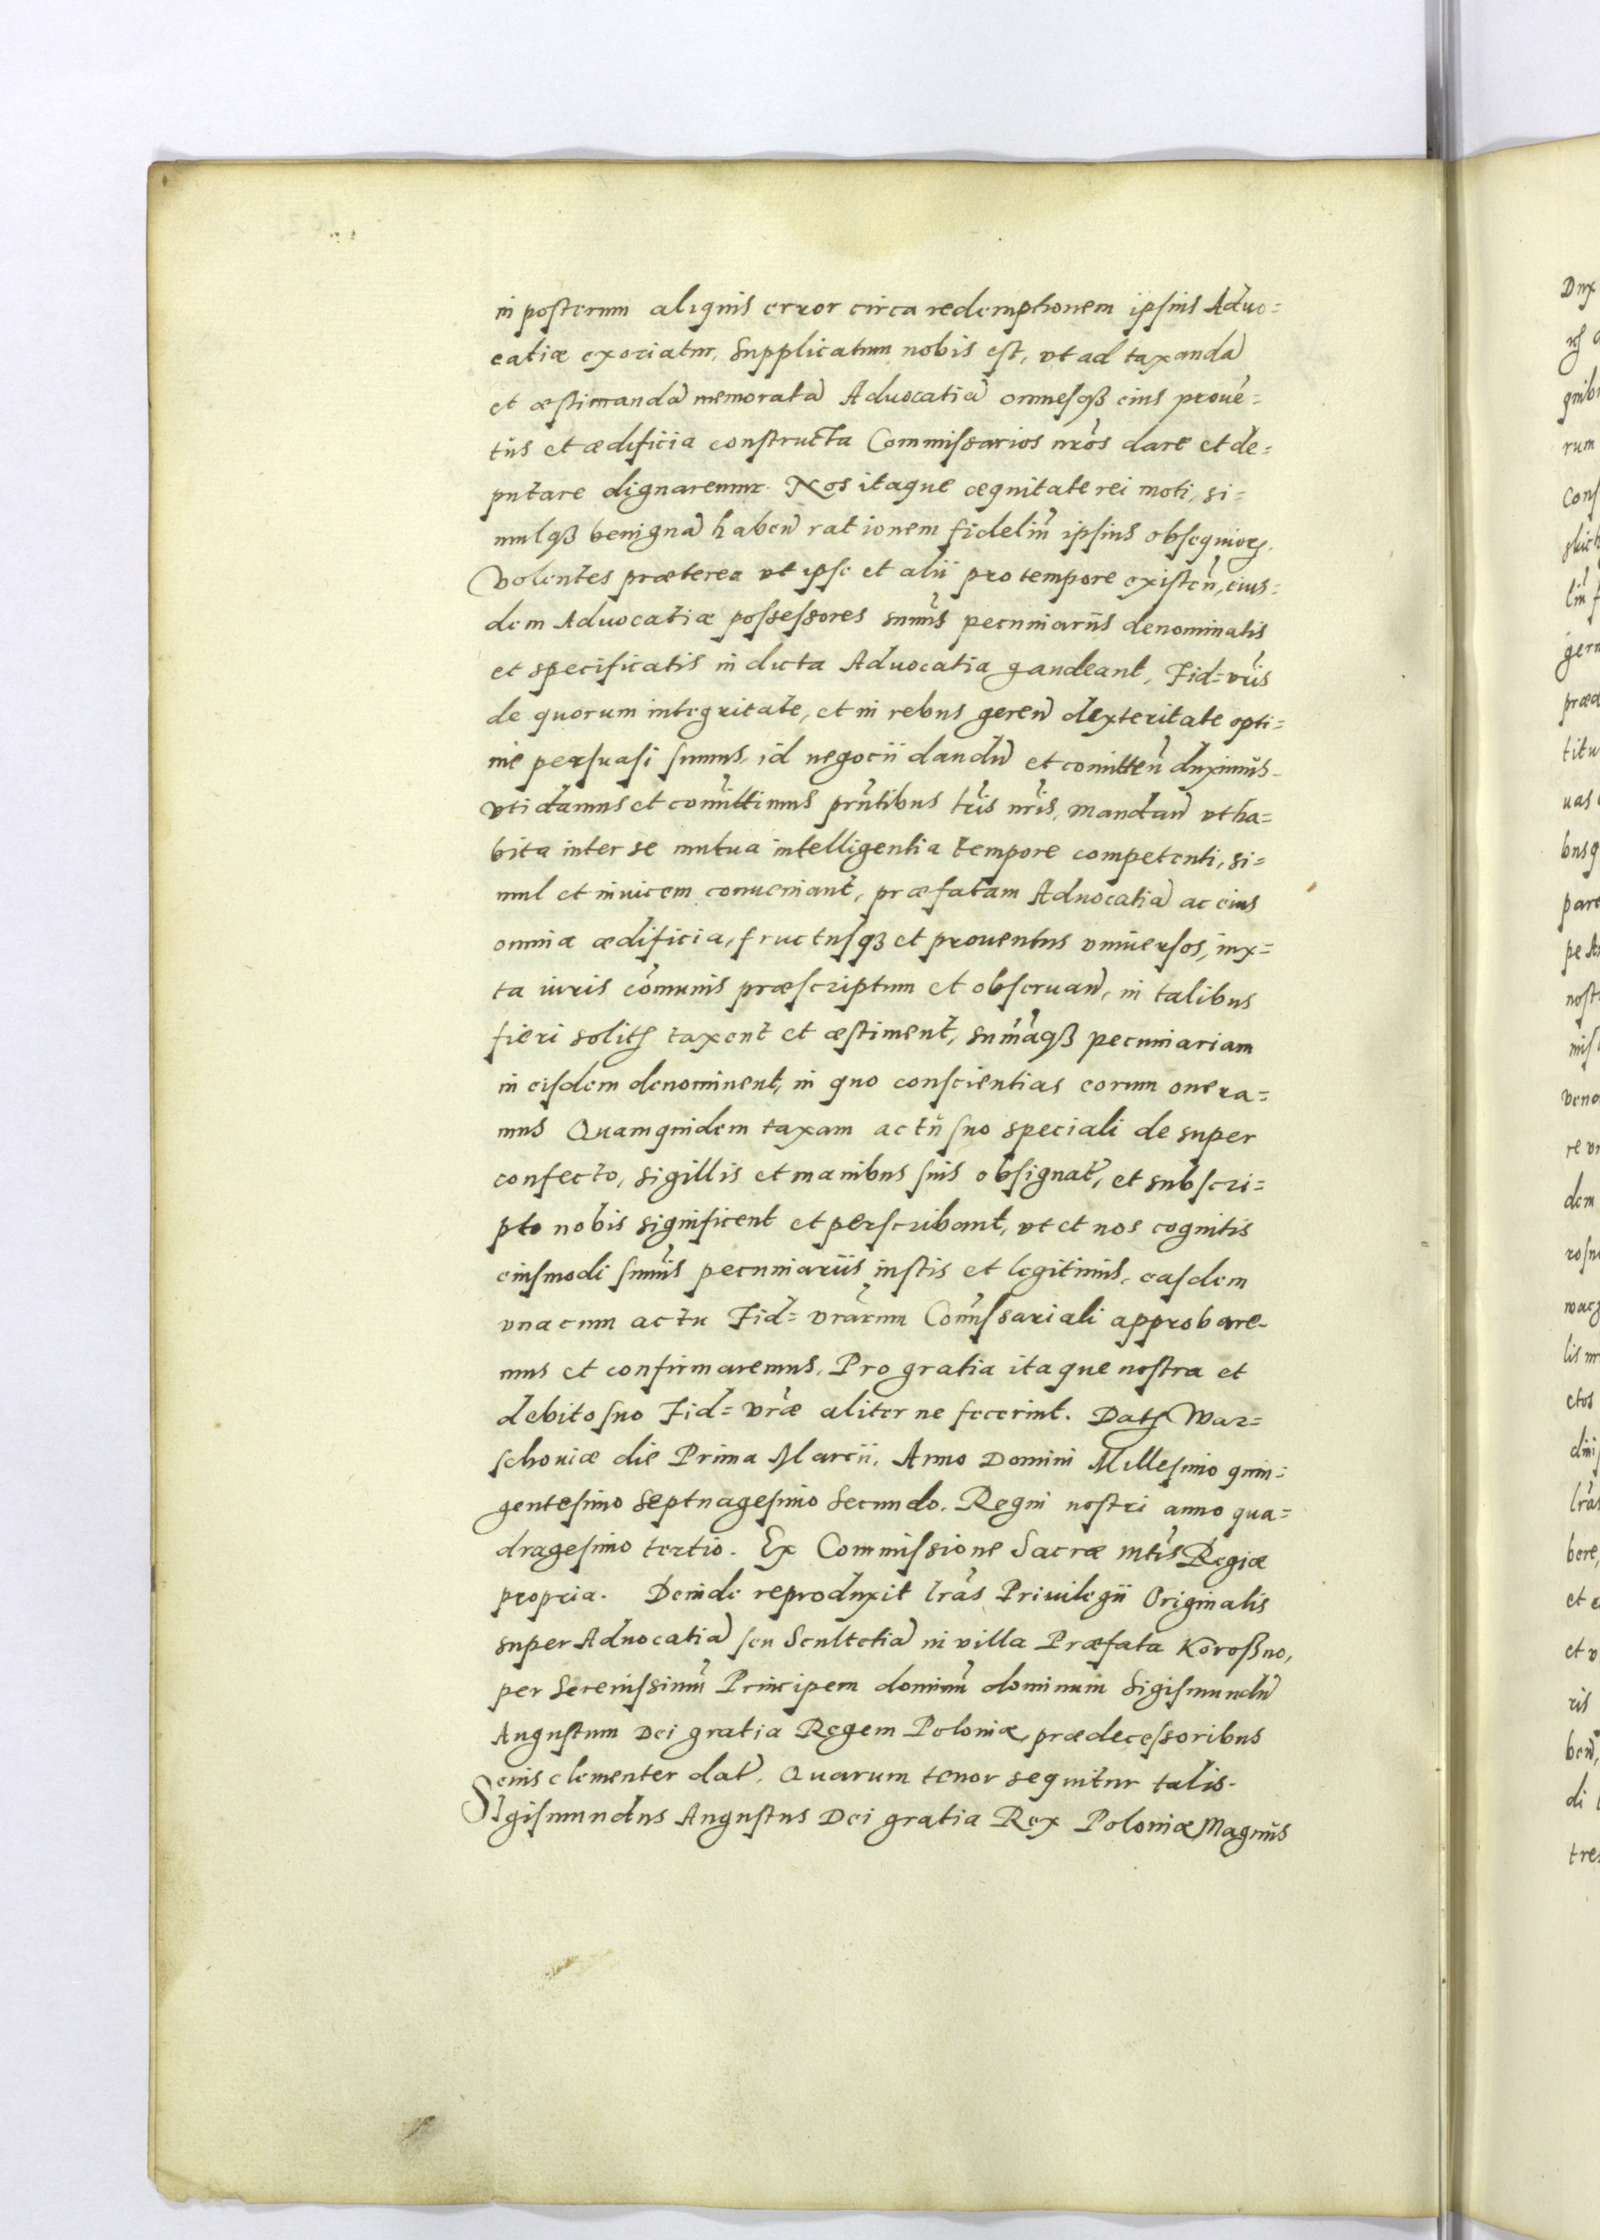 in posterum aliquis error circa redemptionem ipsius Aduo=
catiæ exoriatur, Supplicatum nobis est, vt ad taxandã
et æstimandã memoratã Aduocatiã omnesqȝ eius prouẽ=
tus et ædificia constructa Commissarios nr̃os dare et de=
putare dignaremur. Nos itaque æquitate rei moti, si=
mulqȝ benignã habeñ rationem fideliũ ipsius obsequiorꝝ.
Volentes præterea vt ipse et alii pro tempore existeñ, eius=
dem Aduocatiæ possessores sum̃is pecuniariis denominatis
et specificatis in dicta Aduocatia gaudeant, Fid= vr̃is
de quorum integritate, et in rebus gereñ dexteritate opti=
me persuasi sumus, id negocii dandũ et com̃itteñ duximus.
vti damus et com̃ittimus pr̃ntibus lr̃is nr̃is, mandañ vt ha=
bita inter se mutua intelligentia tempore competenti, si=
mul et inuicem conueniant, præfatam Aduocatiã ac eius
omnia ædificia, fructusqȝ et prouentus vniuersos, iux=
ta iuris com̃unis præscriptum et obseruañ, in talibus
fieri solitꝭ taxent et æstiment, sum̃ãqȝ pecuniariam
in eisdem denominent, in quo conscientias eorum onera=
mus Quamquidem taxam actu suo speciali de super
confecto, sigillis et manibus suis obsignat̃, et subscri=
pto nobis significent et perscribant, vt et nos cognitis
eiusmodi sum̃is pecuniariis iustis et legitimis, easdem
vna cum actu Fid= vr̃arum Com̃issariali approbare=
mus et confirmaremus. Pro gratia itaque nostra et
debito suo Fid= vr̃æ aliter ne fecerint. Datꝭ War=
schouiæ die Prima Marcii. Anno Domini Millesimo quin=
gentesimo Septuagesimo Secundo. Regni nostri anno qua=
dragesimo tertio. Ex Commissione Sacræ Mt̃is Regiæ
propria. Deinde reproduxit lr̃as Priuilegii Originalis
super Aduocatiã seu Scultetiã in villa Præfata Koroßno,
per Serenissimũ Principem dominũ dominum Sigismundũ
Augustum Dei gratia Regem Poloniæ, prædecessoribus
eius clementer dat̃. Quarum tenor sequitur talis.
Sigismundus Augustus Dei gratia Rex Poloniæ, Magnus